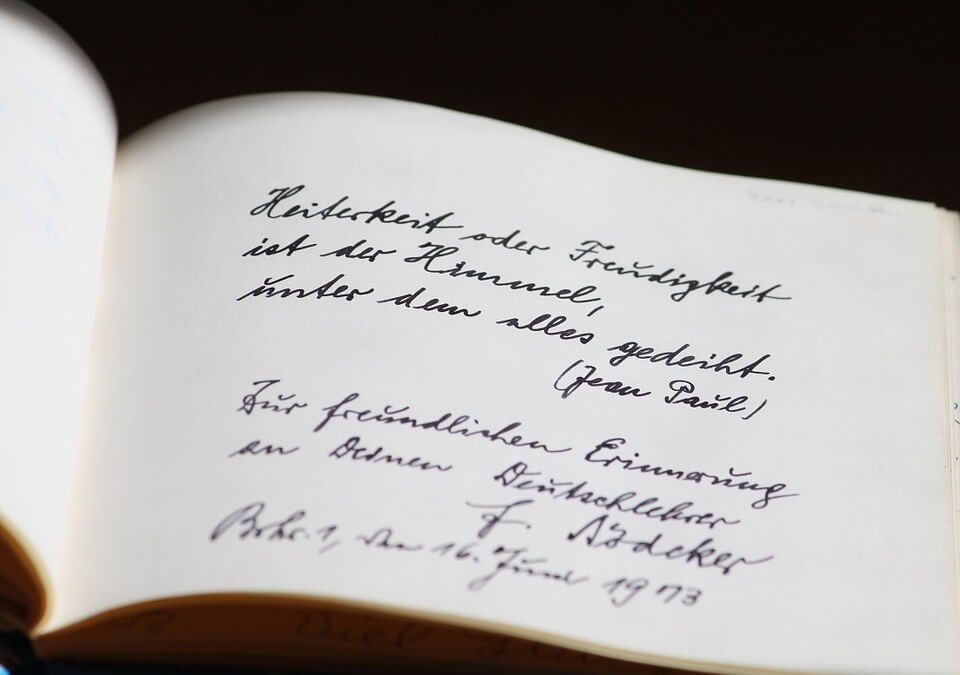 Heiterkeit oder Freudigkeit
ist der Himmel,
unter dem alles gedeiht.
(Jean Paul)
Zur freundlichen Erinnerung
an Deinen Deutschlehrer
F.
Brhv. 1, den 16. Juni 1973
Viel